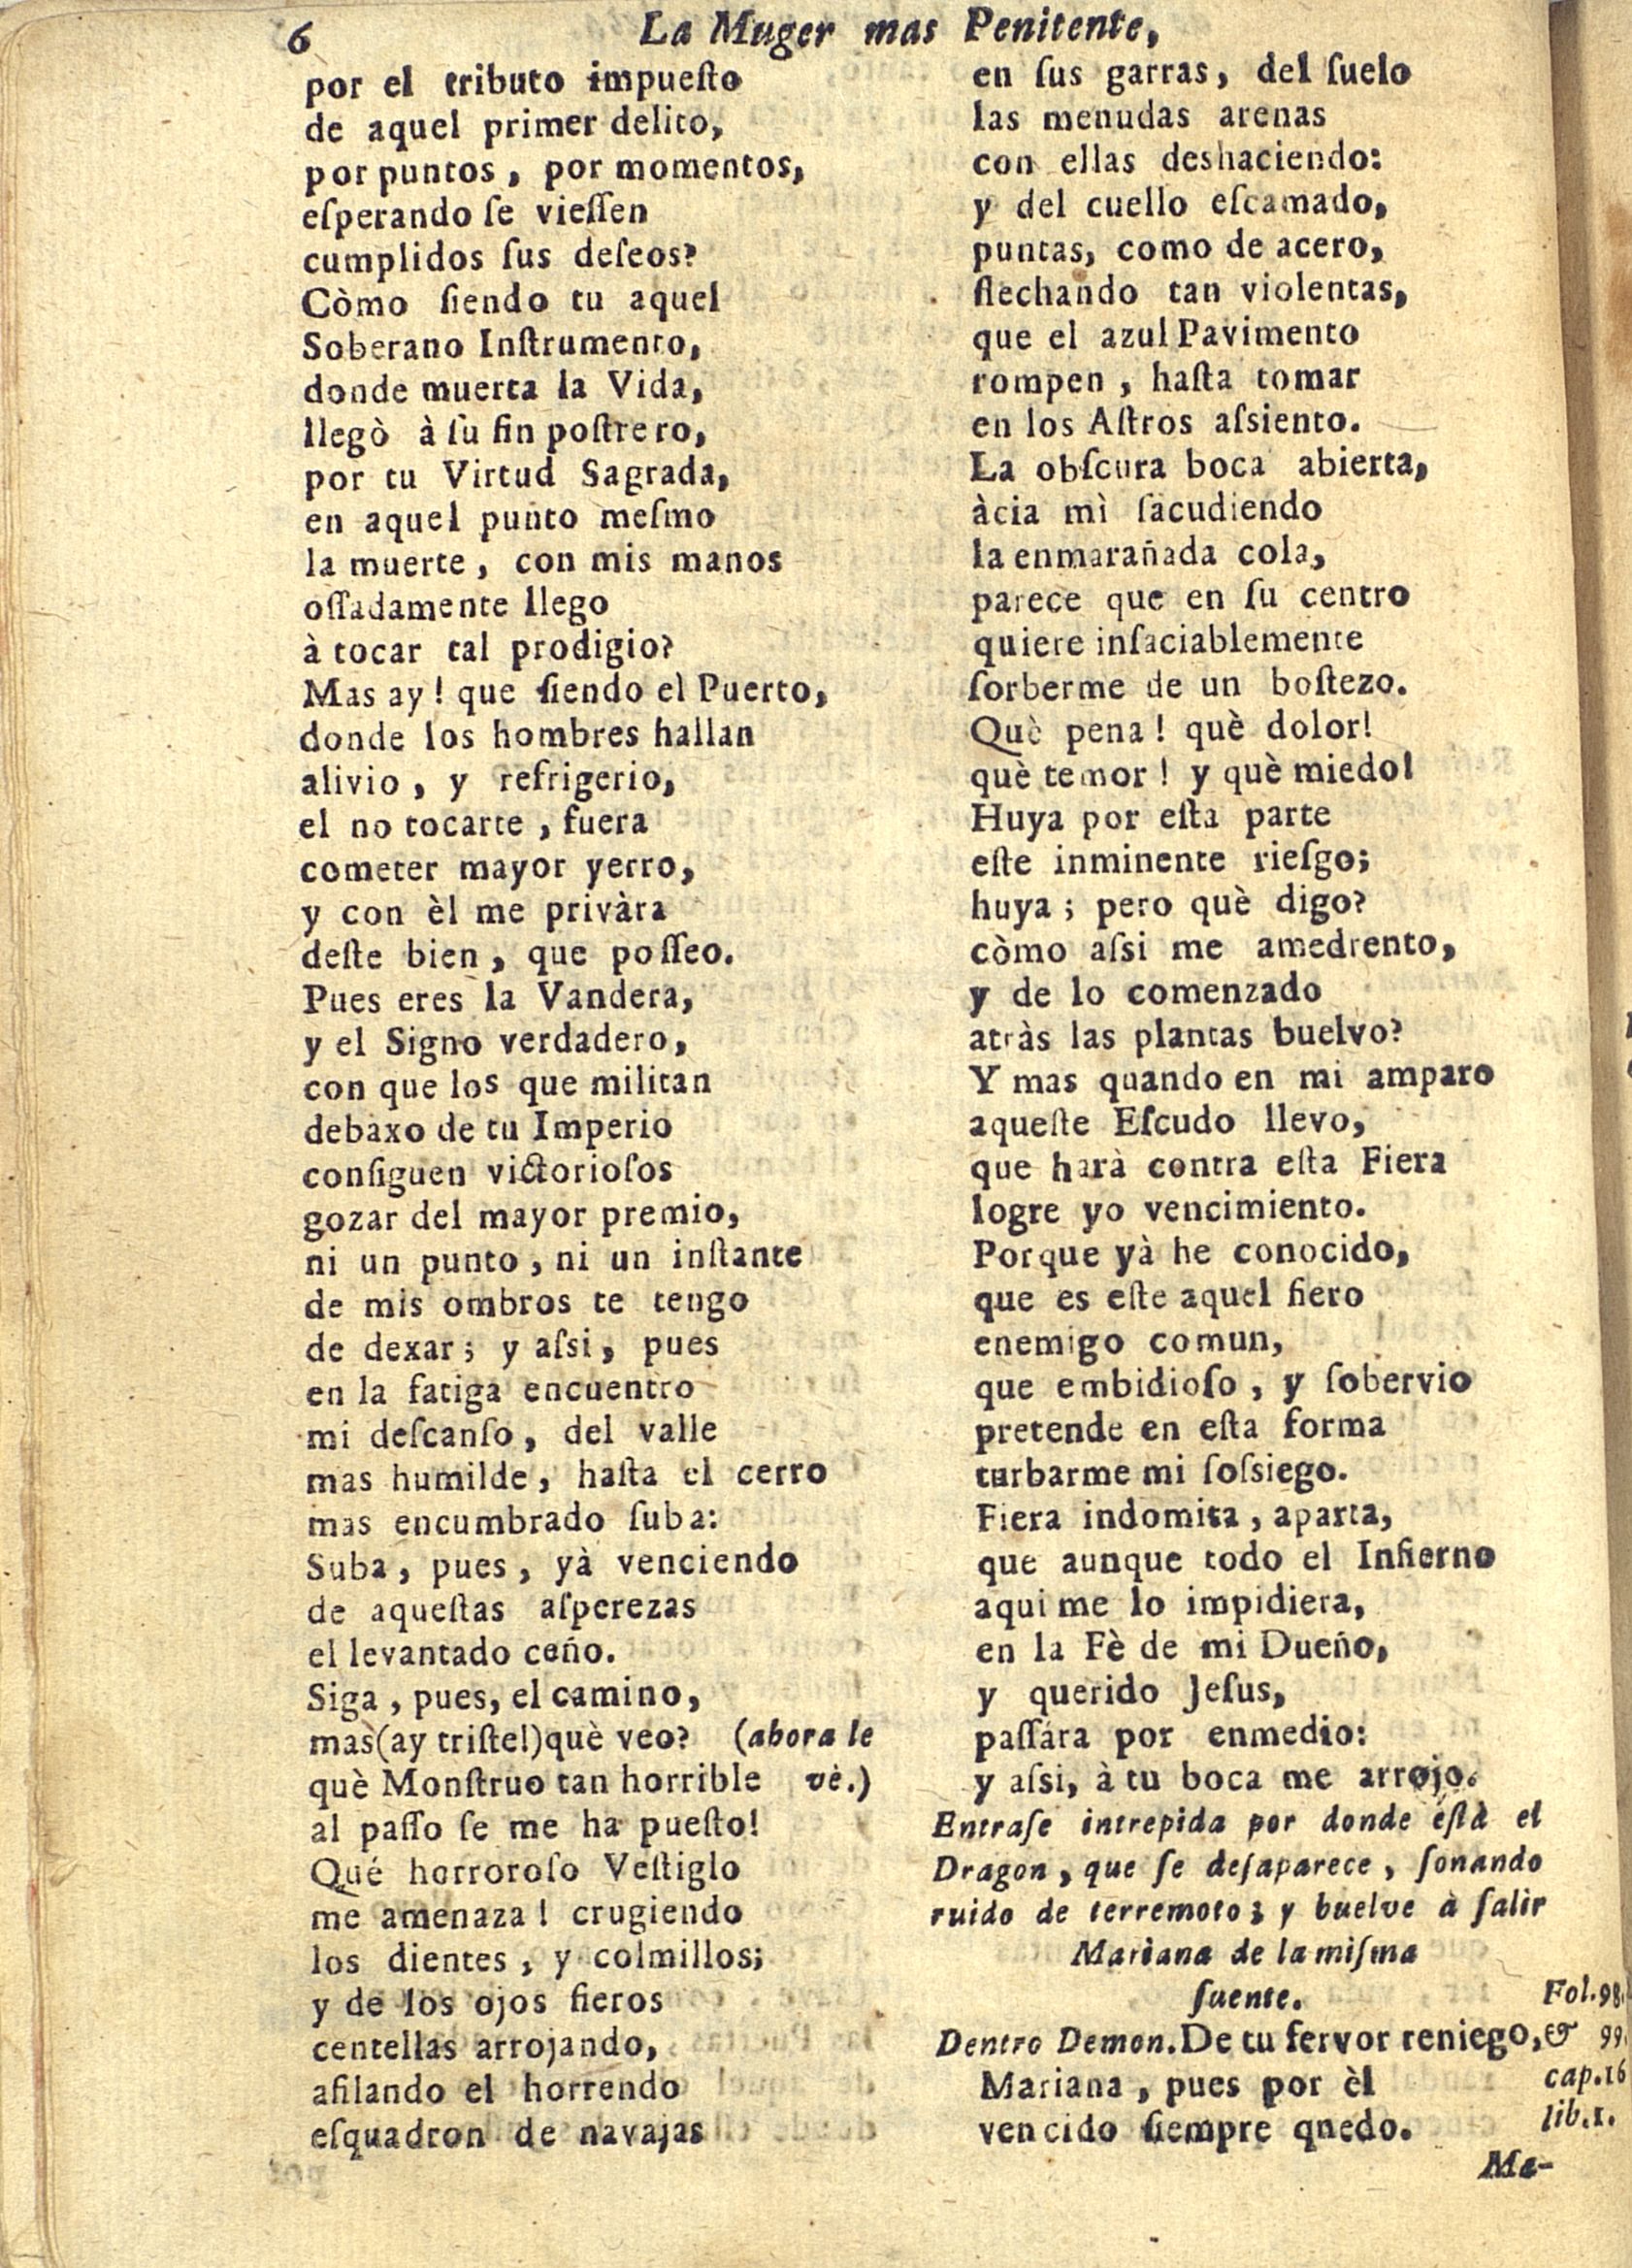 6 La Muger mas Penitente,
por el tributo impueſto
de aquel primer delito,
por puntos, por momentos,
eſperando ſe vieſſen
cumplidos ſus deſeos?
Còmo ſiendo tu aquel
Soberano Inſtrumento,
donde muerta la Vida,
llegò à ſu fin poſtrero,
por tu Virtud Sagrada,
en aquel punto meſmo
la muerte, con mis manos
oſſadamente llego
à tocar tal prodigio?
Mas ay! que ſiendo el Puerto,
donde los hombres hallan
alivio, y refrigerio,
el no tocarte, fuera
cometer mayor yerro,
y con èl me privàra
deſte bien, que poſſeo.
Pues eres la Vandera,
y el Signo verdadero,
con que los que militan
debaxo de tu Imperio
conſiguen victorioſos
gozar del mayor premio,
ni un punto, ni un inſtante
de mis ombros te tengo
de dexar; y aſsi, pues
en la fatiga encuentro
mi deſcanſo, del valle
mas humilde, haſta el cerro
mas encumbrado ſuba:
Suba, pues, yà venciendo
de aqueſtas aſperezas
el levantado ceño.
Siga, pues, el camino,
mas(ay triſte!)què veo? (ahora le
què Monſtruo tan horrible vè.)
al paſſo ſe me ha pueſto!
Qué horroroſo Veſtiglo
me amenaza! crugiendo
los dientes, y colmillos;
y de los ojos fieros
centellas arrojando,
afilando el horrendo
eſquadron de navajas
en ſus garras, del ſuelo
las menudas arenas
con ellas deshaciendo:
y del cuello eſcamado,
puntas, como de acero,
flechando tan violentas,
que el azul Pavimento
rompen, haſta tomar
en los Aſtros aſsiento.
La obſcura boca abierta,
àcia mì ſacudiendo
la enmarañada cola,
parece que en ſu centro
quiere inſaciablemente
ſorberme de un boſtezo.
Què pena! què dolor!
què temor! y què miedo!
Huya por eſta parte
eſte inminente rieſgo;
huya; pero què digo?
còmo aſsi me amedrento,
y de lo comenzado
atràs las plantas buelvo?
Y mas quando en mi amparo
aqueſte Eſcudo llevo,
que harà contra eſta Fiera
logre yo vencimiento.
Porque yà he conocido,
que es eſte aquel fiero
enemigo comun,
que embidioſo, y ſobervio
pretende en eſta forma
turbarme mi ſoſsiego.
Fiera indomita, aparta,
que aunque todo el Infierno
aqui me lo impidiera,
en la Fè de mi Dueño,
y querido Jeſus,
paſſára por enmedio:
y aſsi, à tu boca me arrojo.
Entraſe intrepida por donde eſtà el
Dragon, que ſe deſaparece, ſonando
ruido de terremoto; y buelve à ſalir
Mariana de la miſma
ſuente.
Dentro Demon. De tu fervor reniego,
Mariana, pues por èl
vencido ſiempre qnedo.
Fol. 98.
& 99.
cap. 16
lib. 1.
Ma-